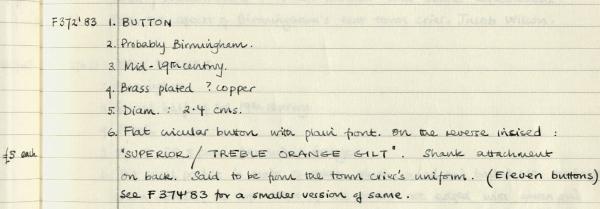 F372'83 1. BUTTON
2. Probably Birmingham.
3. Mid-19th century.
4. Brass plated ? copper
5. Diam. : 2.4 cms.
6. Flat circular button with plain front. On the reverse incised :
£5 each "SUPERIOR / TREBLE ORANGE GILT". Shank attachment
on back. Said to be from the town crier's uniform. (Eleven buttons)
See F374'83 for a smaller version of same.